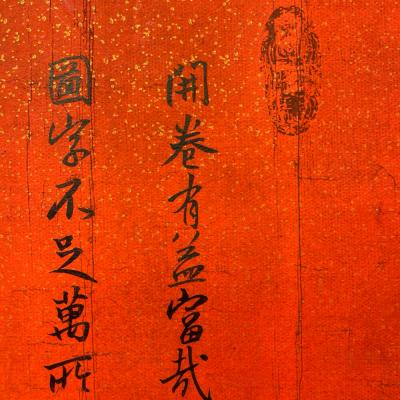 開卷有益富哉
圖字不足萬所